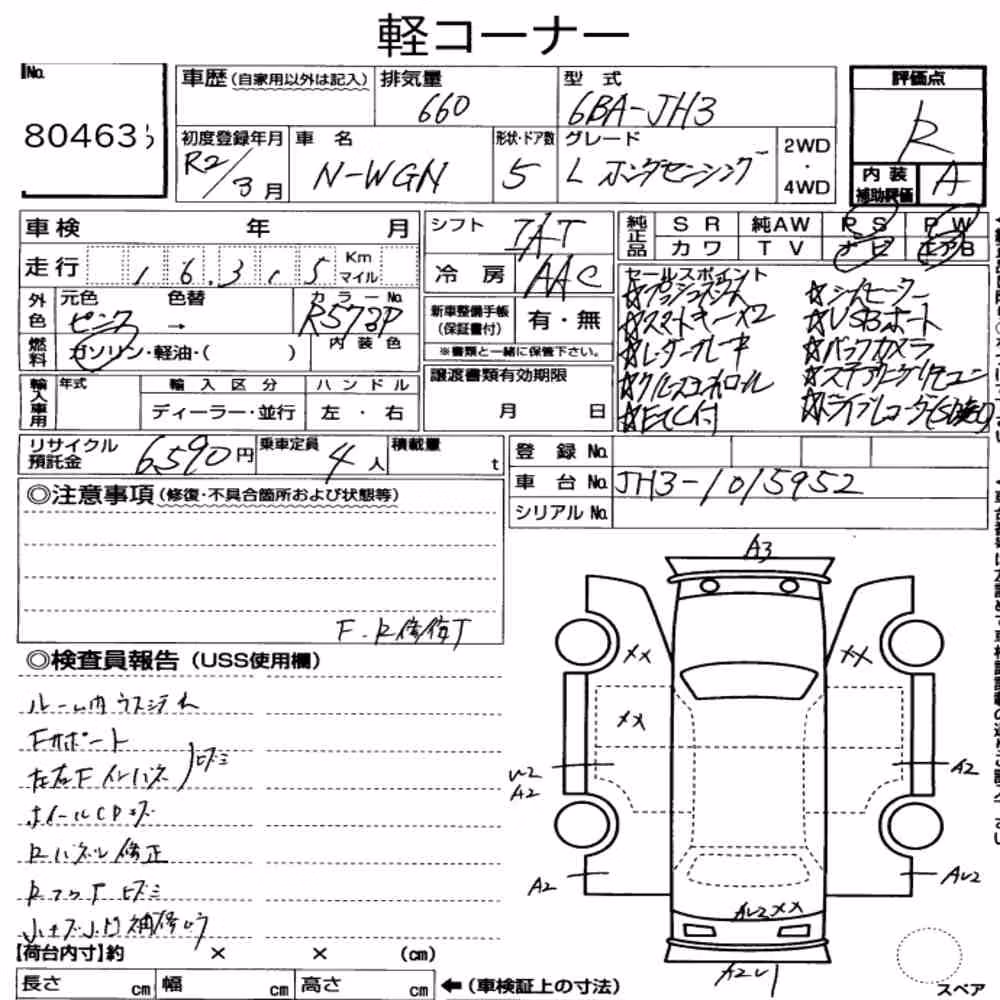 軽コーナー
No.
80463
車歴(自家用以外は記入)
排気量
660
型式
6BA-JH3
評価点
R
初度登録年月
R2/3月
車名
N-WGN
形状・ドア数
5
グレード
L ホンダセンシング
2WD
・
4WD
内装
補助評価
A
車検 年 月
シフト
IAT
純正品
SR 純AW PS PW
カワ TV ナビ エアB
走行 16,315 Km
マイル
冷房
AAC
セールスポイント
☆プッシュスタート ☆シートヒーター
☆スマートキー×2 ☆USBポート
☆レーダーブレーキ ☆バックカメラ
☆クルーズコントロール ☆ステアリングリモコン
☆ETC付 ☆ドライブレコーダー
外色
元色 色替 カラーNo.
ピンク → R578P
新車整備手帳
(保証書付)
有・無
※書類と一緒に保管下さい。
燃料
ガソリン・軽油・( )
内装色
輸入車用
年式
輸入区分
ハンドル
ディーラー・並行
左・右
譲渡書類有効期限
月 日
リサイクル
預託金
6590円
乗車定員
4人
積載量
t
登録No.
車台No. JH3-1015952
シリアルNo.
◎注意事項(修復・不具合箇所および状態等)
F・R修復有
◎検査員報告(USS使用欄)
ルーム内ウスシデイ
Fサポート
左右Fインパネ
ヒズミ
ホイールCPキズ
Rパネル修正
Rフロアヒズミ
A3
XX XX
XX
U2
A2
A2
A2
AU2
AU2XX
A2U1
【荷台内寸】約 × × (cm)
長さ cm 幅 cm 高さ cm
←(車検証上の寸法)
スペア